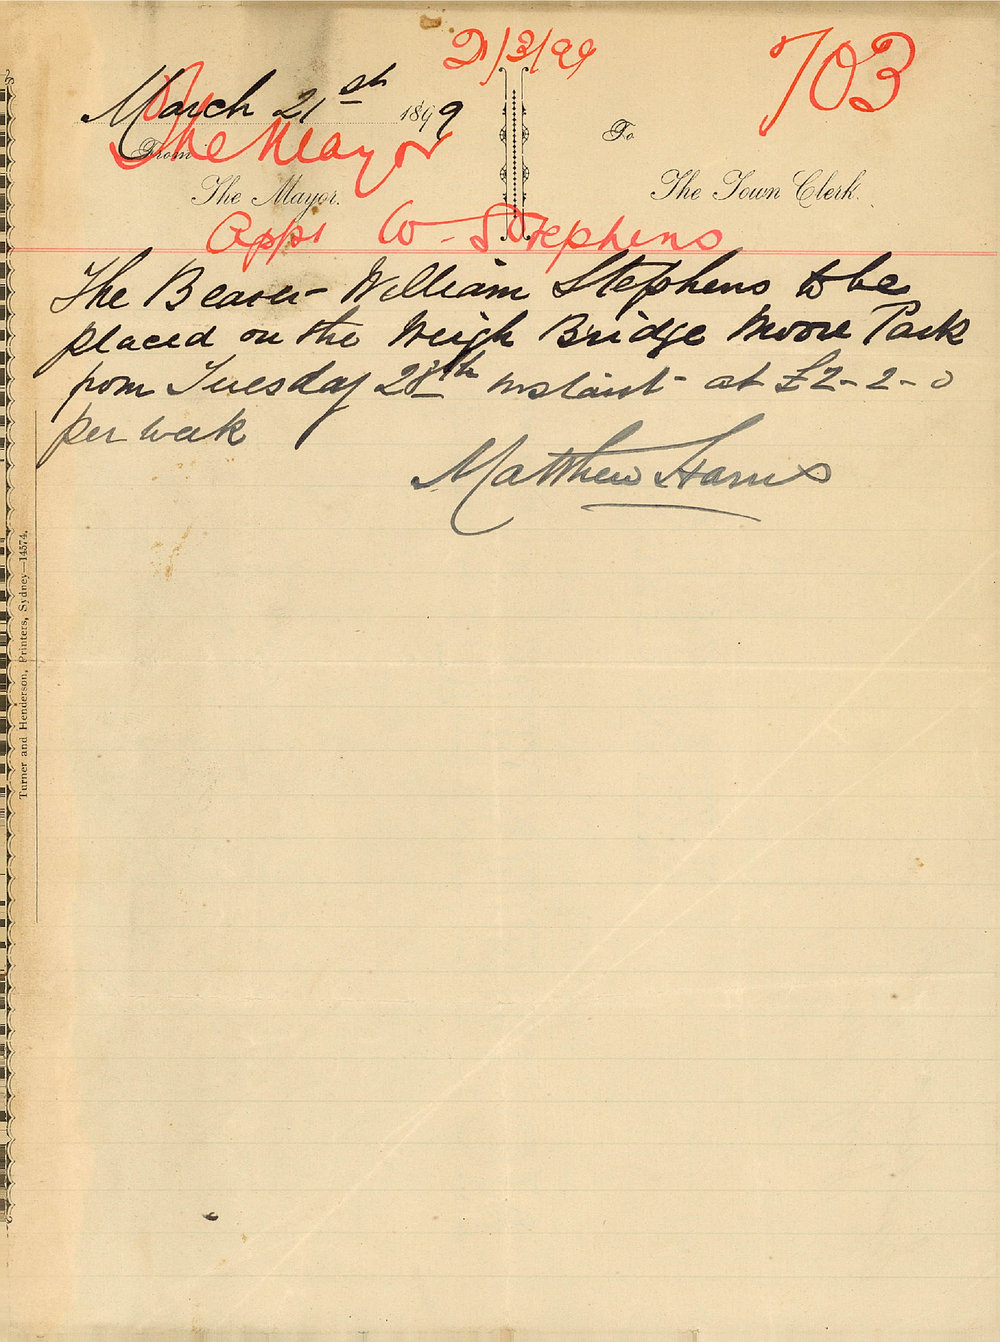 21/3/99
703
March 21st 1899
From
The Mayor
The Mayor.
To
The Town Clerk.
Appt W. Stephens
The Bearer William Stephens to be
placed on the Weigh Bridge Moore Park
from Tuesday 28th instant at £2-2-0
per week
Matthew Harris
Turner and Henderson, Printers, Sydney—14574.